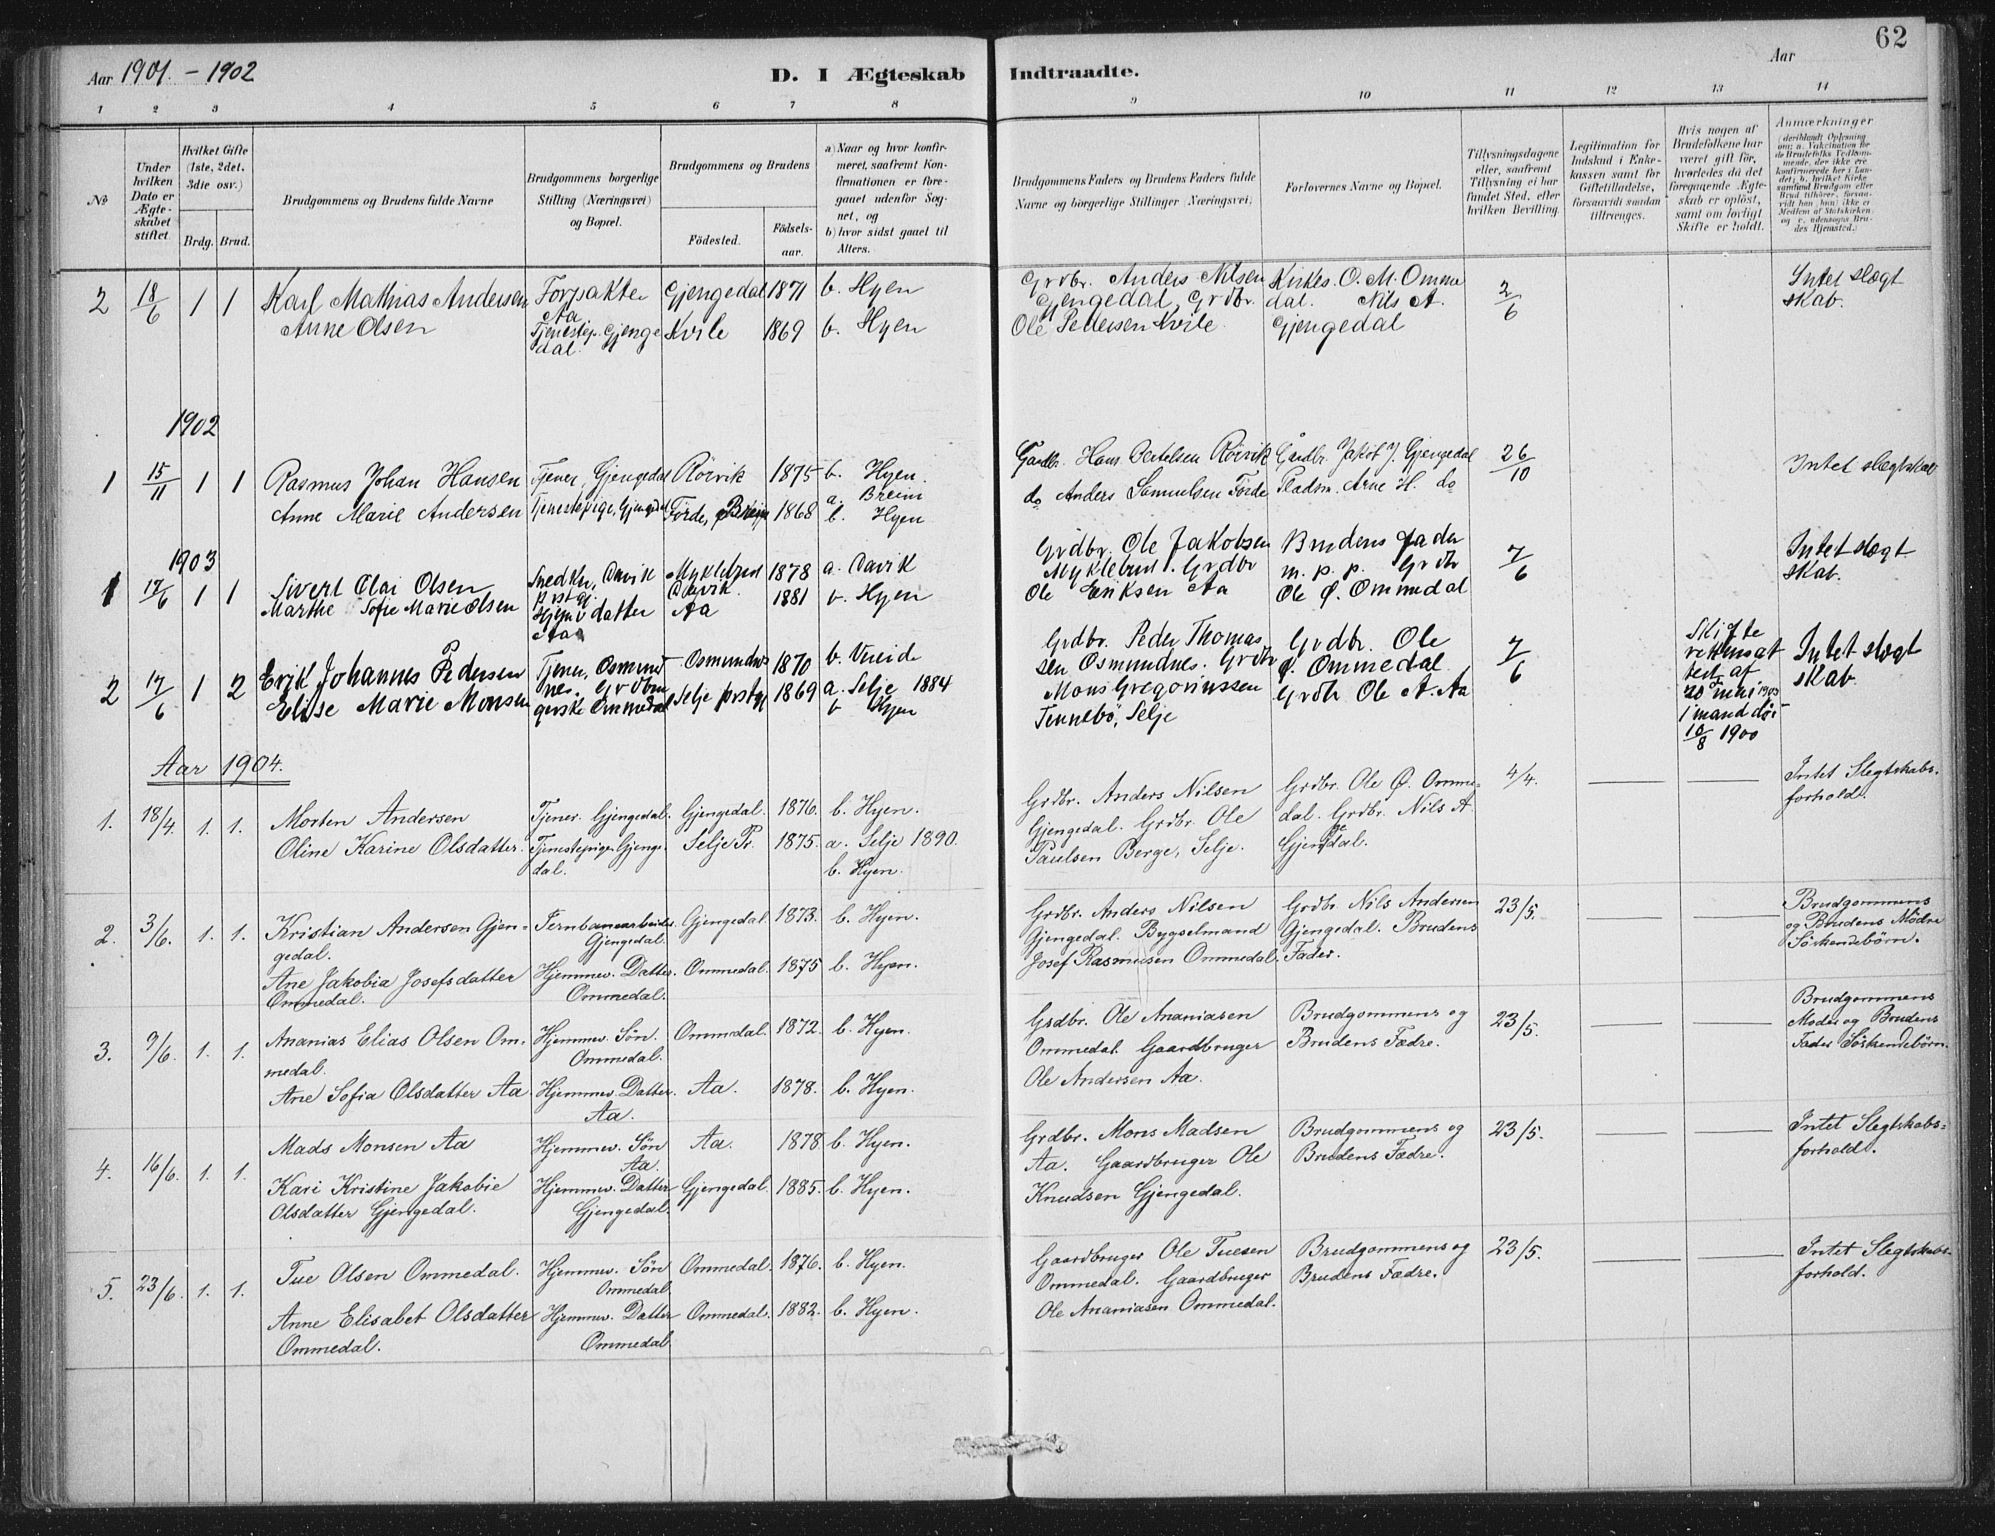 Aar 1901. - 1902
D. I Ægteskab Indtraadte.
Aar
62
1 2 3 4 5 6 7 8 9 10 11 12 13 14
No
Under hvilken Dato er Ægteskabet stiftet.
Hvilket Gifte (1ste, 2det, 3die osv.)
Brdg. Brud.
Brudgommens og Brudens fulde Navne
Brudgommens borgerlige Stilling (Næringsvei) og Bopæl.
Brudgommens og Brudens
Födested.
Födselsaar.
a) Naar og hvor konfirmeret, saafremt Konfirmationen er foregaaet udenfor Sognet, og
b) hvor sidst gaaet til Alters.
Brudgommens Faders og Brudens Faders fulde Navne og borgerlige Stillinger (Næringsvei)
Forlovernes Navne og Bopæl.
Tillysningsdagene eller, saafremt Tillysning ei har fundet Sted, efter hvilken Bevilling.
Legitimation for Indskud i Enkekassen samt for Giftetilladelse, forsaavidt saadan tiltrænges.
Hvis nogen af Brudefolkene har været gift før, hvorledes da det foregaaende Ægteskab er oplöst, samt om lovligt Skifte er holdt.
Anmærkninger
2 18/6 1 1 Karl Mathias Andersen Forpakter Aa Gjengedal 1871 b. Hyen
Anne Olsen Tjenestep. Gjengedal Kvile 1869 b. Hyen
Grdbr. Anders Nilsen Gjengedal, Grdbr. Ole Pedersen Kvile
Kirkes. O. M. Ommedal. Nils A. Gjengedal
2/6
Intet slægtskab.
1902
1 15/11 1 1 Rasmus Johan Hansen Tjener, Gjengedal Rörvik 1875 b. Hyen.
Anne Marie Andersen Tjenestepige, Gjengedal Förde, Breim 1868 a. Breim b. Hyen
Gardbr. Hans Bertelsen Rörvik
do Anders Samuelsen Förde
Gårdbr. Jakob J. Gjengedal
Pladsm. Arne H. do
26/10
Intet slægtskab
1903
1 17/6 1 1 Sivert Elai Olsen Snedker, Davik prstg. Myklebust Davik. 1878 a. Davik
Marthe Sofie Marie Olsen Hjemv datter Aa Aa 1881 b. Hyen
Grdbr. Ole Jakobsen Myklebust. Grdbr Ole Eriksen Aa
Brudens fader m. p. p. Grdbr Ole Ø. Ommedal
7/6
Intet slægtskab.
2 17/6 1 2 Erik Johannes Pedersen Tjener, Osmundnes. Osmundnes 1870 b. Vereide
Elise Marie Monsen Grdbrugerske Ommedal Selje prstg 1869 a. Selje 1884 b Hyen
Grdbr. Peder Thomassen Osmundnes. Grdbr Mons Gregoriussen Tennebö, Selje
Grdbr. Ole Ø. Ommedal. Grdbr Ole A. Aa
7/6
Skifte af 20 mai 1903 1 mand död 10/8 1900
Intet slægtskab.
Aar 1904.
1. 18/4. 1. 1. Morten Andersen Tjener. Gjengedal. Gjengedal. 1876. b. Hyen.
Oline Karine Olsdatter. Tjenestepige. Gjengedal. Selje Pr. 1875. a. Selje 1890. b. Hyen.
Grdbr. Anders Nilsen Gjengedal. Grdbr. Ole Paulsen Berge, Selje.
Grdbr. Ole Ø. Ommedal. Grdbr. Nils A. Gjengedal.
4/4.
Intet Slegtskabsforhold.
2. 3/6. 1. 1. Kristian Andersen Gjengedal. Jernbanearbeider. Gjengedal. Gjengedal. 1873. b. Hyen.
Ane Jakobia Josefsdatter Ommedal. Hjemmev. Datter. Ommedal. Ommedal. 1875 b. Hyen.
Grdbr. Anders Nilsen Gjengedal. Bygselmand Josef Rasmusen Ommedal.
Grdbr. Nils Andersen Gjengedal. Brudens Fader.
23/5.
Brudgommens og Brudens Mödre Söskendebörn.
3. 9/6. 1. 1. Ananias Elias Olsen Ommedal. Hjemmev. Sön. Ommedal. Ommedal. 1872. b. Hyen.
Ane Sofia Olsdatter Aa Hjemmev. Datter. Aa. Aa. 1878. b. Hyen.
Grdbr. Ole Ananiasen Ommedal. Gaardbruger Ole Andersen Aa.
Brudgommens og Brudens Fædre.
23/5.
Brudgommens Moder og Brudens Fader Söskendebörn.
4. 16/6. 1. 1. Mads Monsen Aa Hjemmev. Sön Aa. Aa. 1878 b. Hyen.
Kari Kristine Jakobie Olsdatter Gjengedal. Hjemmev. Datter Gjengedal. Gjengedal. 1885. b. Hyen.
Grdbr. Mons Madsen Aa. Gaardbruger Ole Knudsen Gjengedal.
Brudgommens og Brudens Fædre.
23/5.
Intet Slegtskabsforhold.
5. 23/6. 1. 1. Tue Olsen Ommedal. Hjemmev. Sön Ommedal. Ommedal. 1876. b. Hyen.
Anne Elisabet Olsdatter Ommedal. Hjemmev. Datter Ommedal. Ommedal. 1882. b. Hyen.
Gaardbruger Ole Tuesen Ommedal. Gaardbruger Ole Ananiasen Ommedal.
Brudgommens og Brudens Fædre.
23/5.
Intet Slegtskabsforhold.